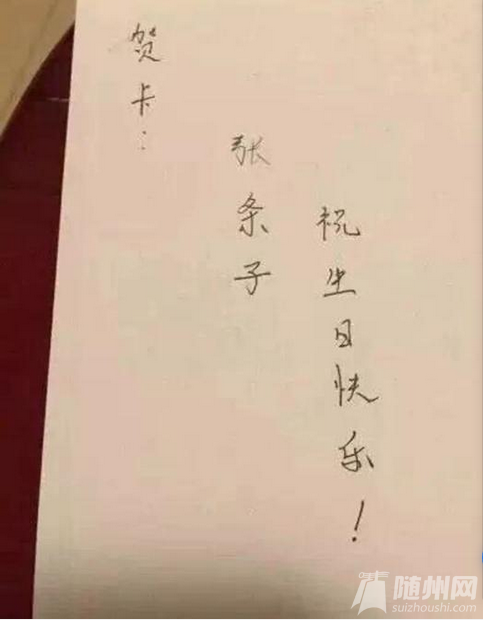 贺卡：
张条子
祝生日快乐！
随州网
suizhoushi.com